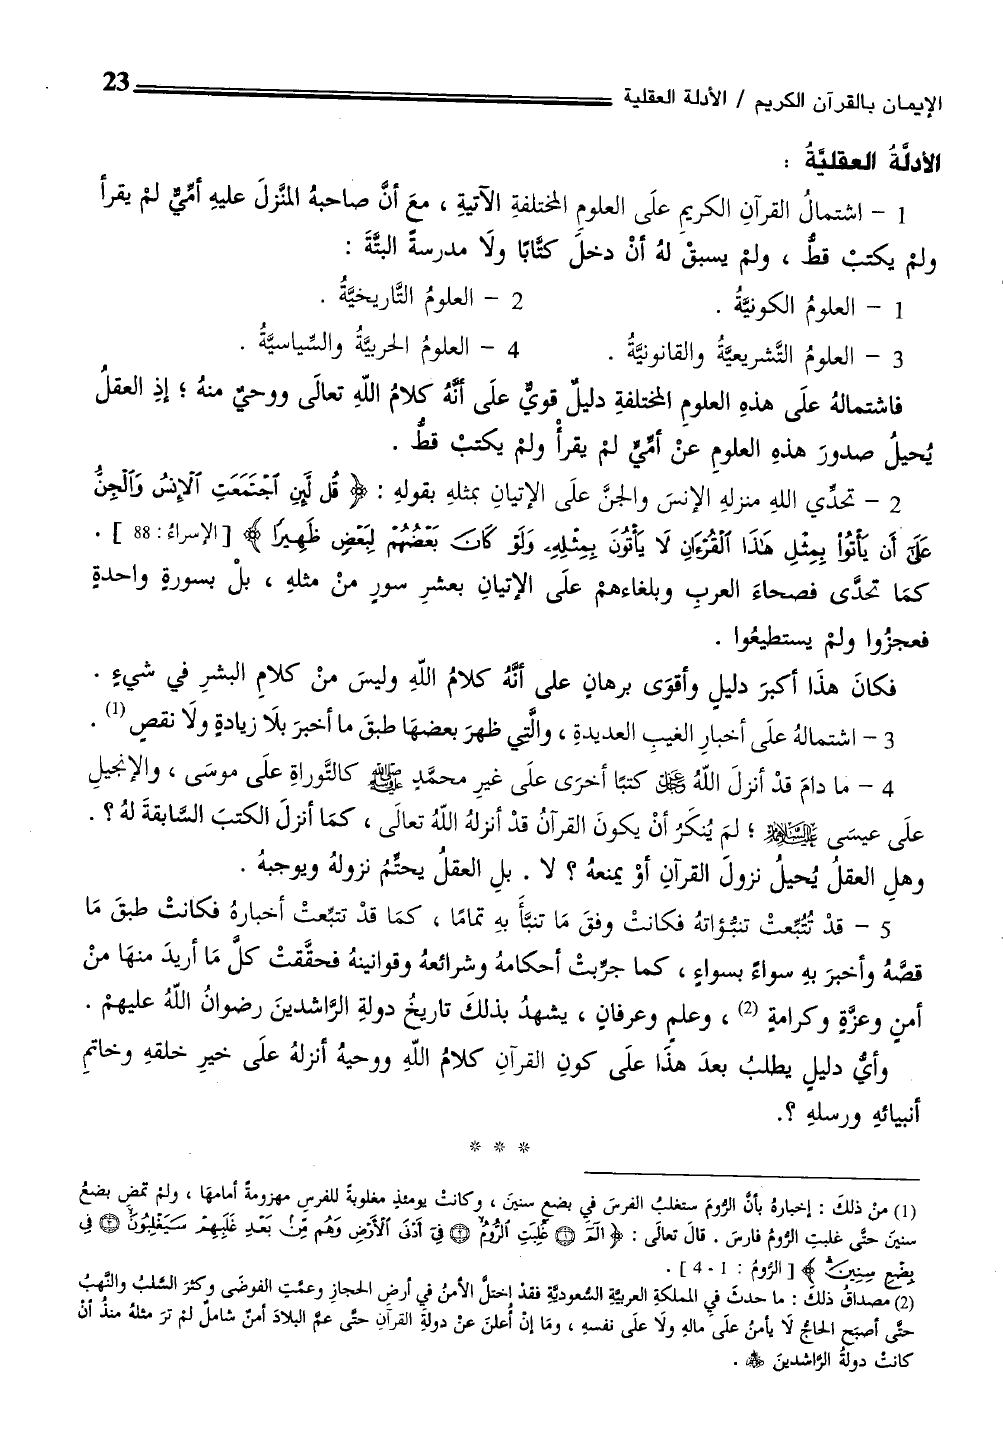 الإيمان بالقرآن الكريم / الأدلة العقلية 23
الأدلَّةُ العقليَّةُ :
1 - اشتمالُ القرآنِ الكريمِ علَى العلومِ المختلفةِ الآتيةِ ، معَ أنَّ صاحبهُ المنَّزلَ عليهِ أمِّيٌّ لمْ يقرأْ
ولمْ يكتبْ قطُّ ، ولمْ يسبقْ لهُ أنْ دخلَ كتَّابًا ولَا مدرسةً البتَّةَ :
1 - العلومُ الكونيَّةُ . 2 - العلومُ التَّاريخيَّةُ .
3 - العلومُ التَّشريعيَّةُ والقانونيَّةُ . 4 - العلومُ الحربيَّةُ والسِّياسيَّةُ .
فاشتمالهُ علَى هذهِ العلومِ المختلفةِ دليلٌ قويٌّ علَى أنَّهُ كلامُ اللَّهِ تعالَى ووحيٌ منهُ ؛ إذِ العقلُ
يُحيلُ صدورَ هذهِ العلومِ عنْ أمِّيٍّ لمْ يقرأْ ولمْ يكتبْ قطُّ .
2 - تحدِّي اللهِ منزلهِ الإنسَ والجنَّ علَى الإتيانِ بمثلهِ بقولهِ : ﴿ قُل لَّئِنِ ٱجْتَمَعَتِ ٱلْإِنسُ وَٱلْجِنُّ
عَلَىٰٓ أَن يَأْتُوا۟ بِمِثْلِ هَٰذَا ٱلْقُرْءَانِ لَا يَأْتُونَ بِمِثْلِهِۦ وَلَوْ كَانَ بَعْضُهُمْ لِبَعْضٍ ظَهِيرًا ﴾ [ الإسراءُ : 88 ] .
كمَا تحدَّى فصحاءَ العربِ وبلغاءهمْ علَى الإتيانِ بعشرِ سورٍ منْ مثلهِ ، بلْ بسورةٍ واحدةٍ
فعجزُوا ولمْ يستطيعُوا .
فكانَ هذَا أكبرَ دليلٍ وأقوَى برهانٍ على أنَّهُ كلامُ اللَّهِ وليسَ منْ كلامِ البشرِ في شيءٍ .
3 - اشتمالهُ علَى أخبارِ الغيبِ العديدةِ ، والَّتِي ظهرَ بعضهَا طبقَ ما أخبرَ بلَا زيادةٍ ولَا نقصٍ (1) .
4 - ما دامَ قدْ أنزلَ اللَّهُ ﷻ كتبًا أخرَى علَى غيرِ محمَّدٍ ﷺ كالتَّوراةِ علَى موسَى ، والإنجيلِ
علَى عيسَى عليه السلام ؛ لمَ يُنكَرُ أنْ يكونَ القرآنُ قدْ أنزلهُ اللَّهُ تعالَى ، كمَا أنزلَ الكتبَ السَّابقةَ لهُ ؟ .
وهلِ العقلُ يُحيلُ نزولَ القرآنِ أوْ يمنعهُ ؟ لا . بلِ العقلُ يحتِّمُ نزولهُ ويوجبهُ .
5 - قدْ تُتُبِّعتْ تنبُّؤاتهُ فكانتْ وفقَ مَا تنبَّأَ بهِ تمامًا ، كمَا قدْ تتبِّعتْ أخبارهُ فكانتْ طبقَ مَا
قصَّهُ وأخبرَ بهِ سواءً بسواءٍ ، كما جرِّبتْ أحكامهُ وشرائعهُ وقوانينهُ فحقَّقتْ كلَّ مَا أريدَ منهَا منْ
أمنٍ وعزَّةٍ وكرامةٍ (2) ، وعلمٍ وعرفانٍ ، يشهدُ بذلكَ تاريخُ دولةِ الرَّاشدينَ رضوانُ اللَّهُ عليهمْ .
وأيُّ دليلٍ يطلبُ بعدَ هذَا علَى كونِ القرآنِ كلامُ اللَّهِ ووحيهُ أنزلهُ علَى خيرِ خلقهِ وخاتمِ
أنبيائهِ ورسلهِ ؟.
* * *
(1) منْ ذلكَ : إخبارهُ بأنَّ الرُّومَ ستغلبُ الفرسَ في بضعِ سنينَ ، وكانتْ يومئذٍ مغلوبةً للفرسِ مهزومةً أمامهَا ، ولمْ تمضِ بضعُ
سنينَ حتَّى غلبتِ الرُّومُ فارسَ . قالَ تعالَى : ﴿ الٓمٓ ١ غُلِبَتِ ٱلرُّومُ ٢ فِىٓ أَدْنَى ٱلْأَرْضِ وَهُم مِّنۢ بَعْدِ غَلَبِهِمْ سَيَغْلِبُونَ ٣ فِى
بِضْعِ سِنِينَ ﴾ [ الرُّومُ : 1 - 4 ] .
(2) مصداقُ ذلكَ : ما حدثَ في المملكةِ العربيَّةِ السُّعوديَّةِ فقدْ اختلَّ الأمنُ في أرضِ الحجازِ وعمَّتِ الفوضَى وكثرَ السَّلبُ والنَّهبُ
حتَّى أصبَح الحاجُّ لَا يأمنُ علَى مالهِ ولَا علَى نفسهِ ، ومَا إنْ أُعلنَ عنْ دولةِ القرآنِ حتَّى عمَّ البلادَ أمنٌ شاملٌ لمْ ترَ مثلهُ منذُ أنْ
كانتْ دولةُ الرَّاشدينَ .